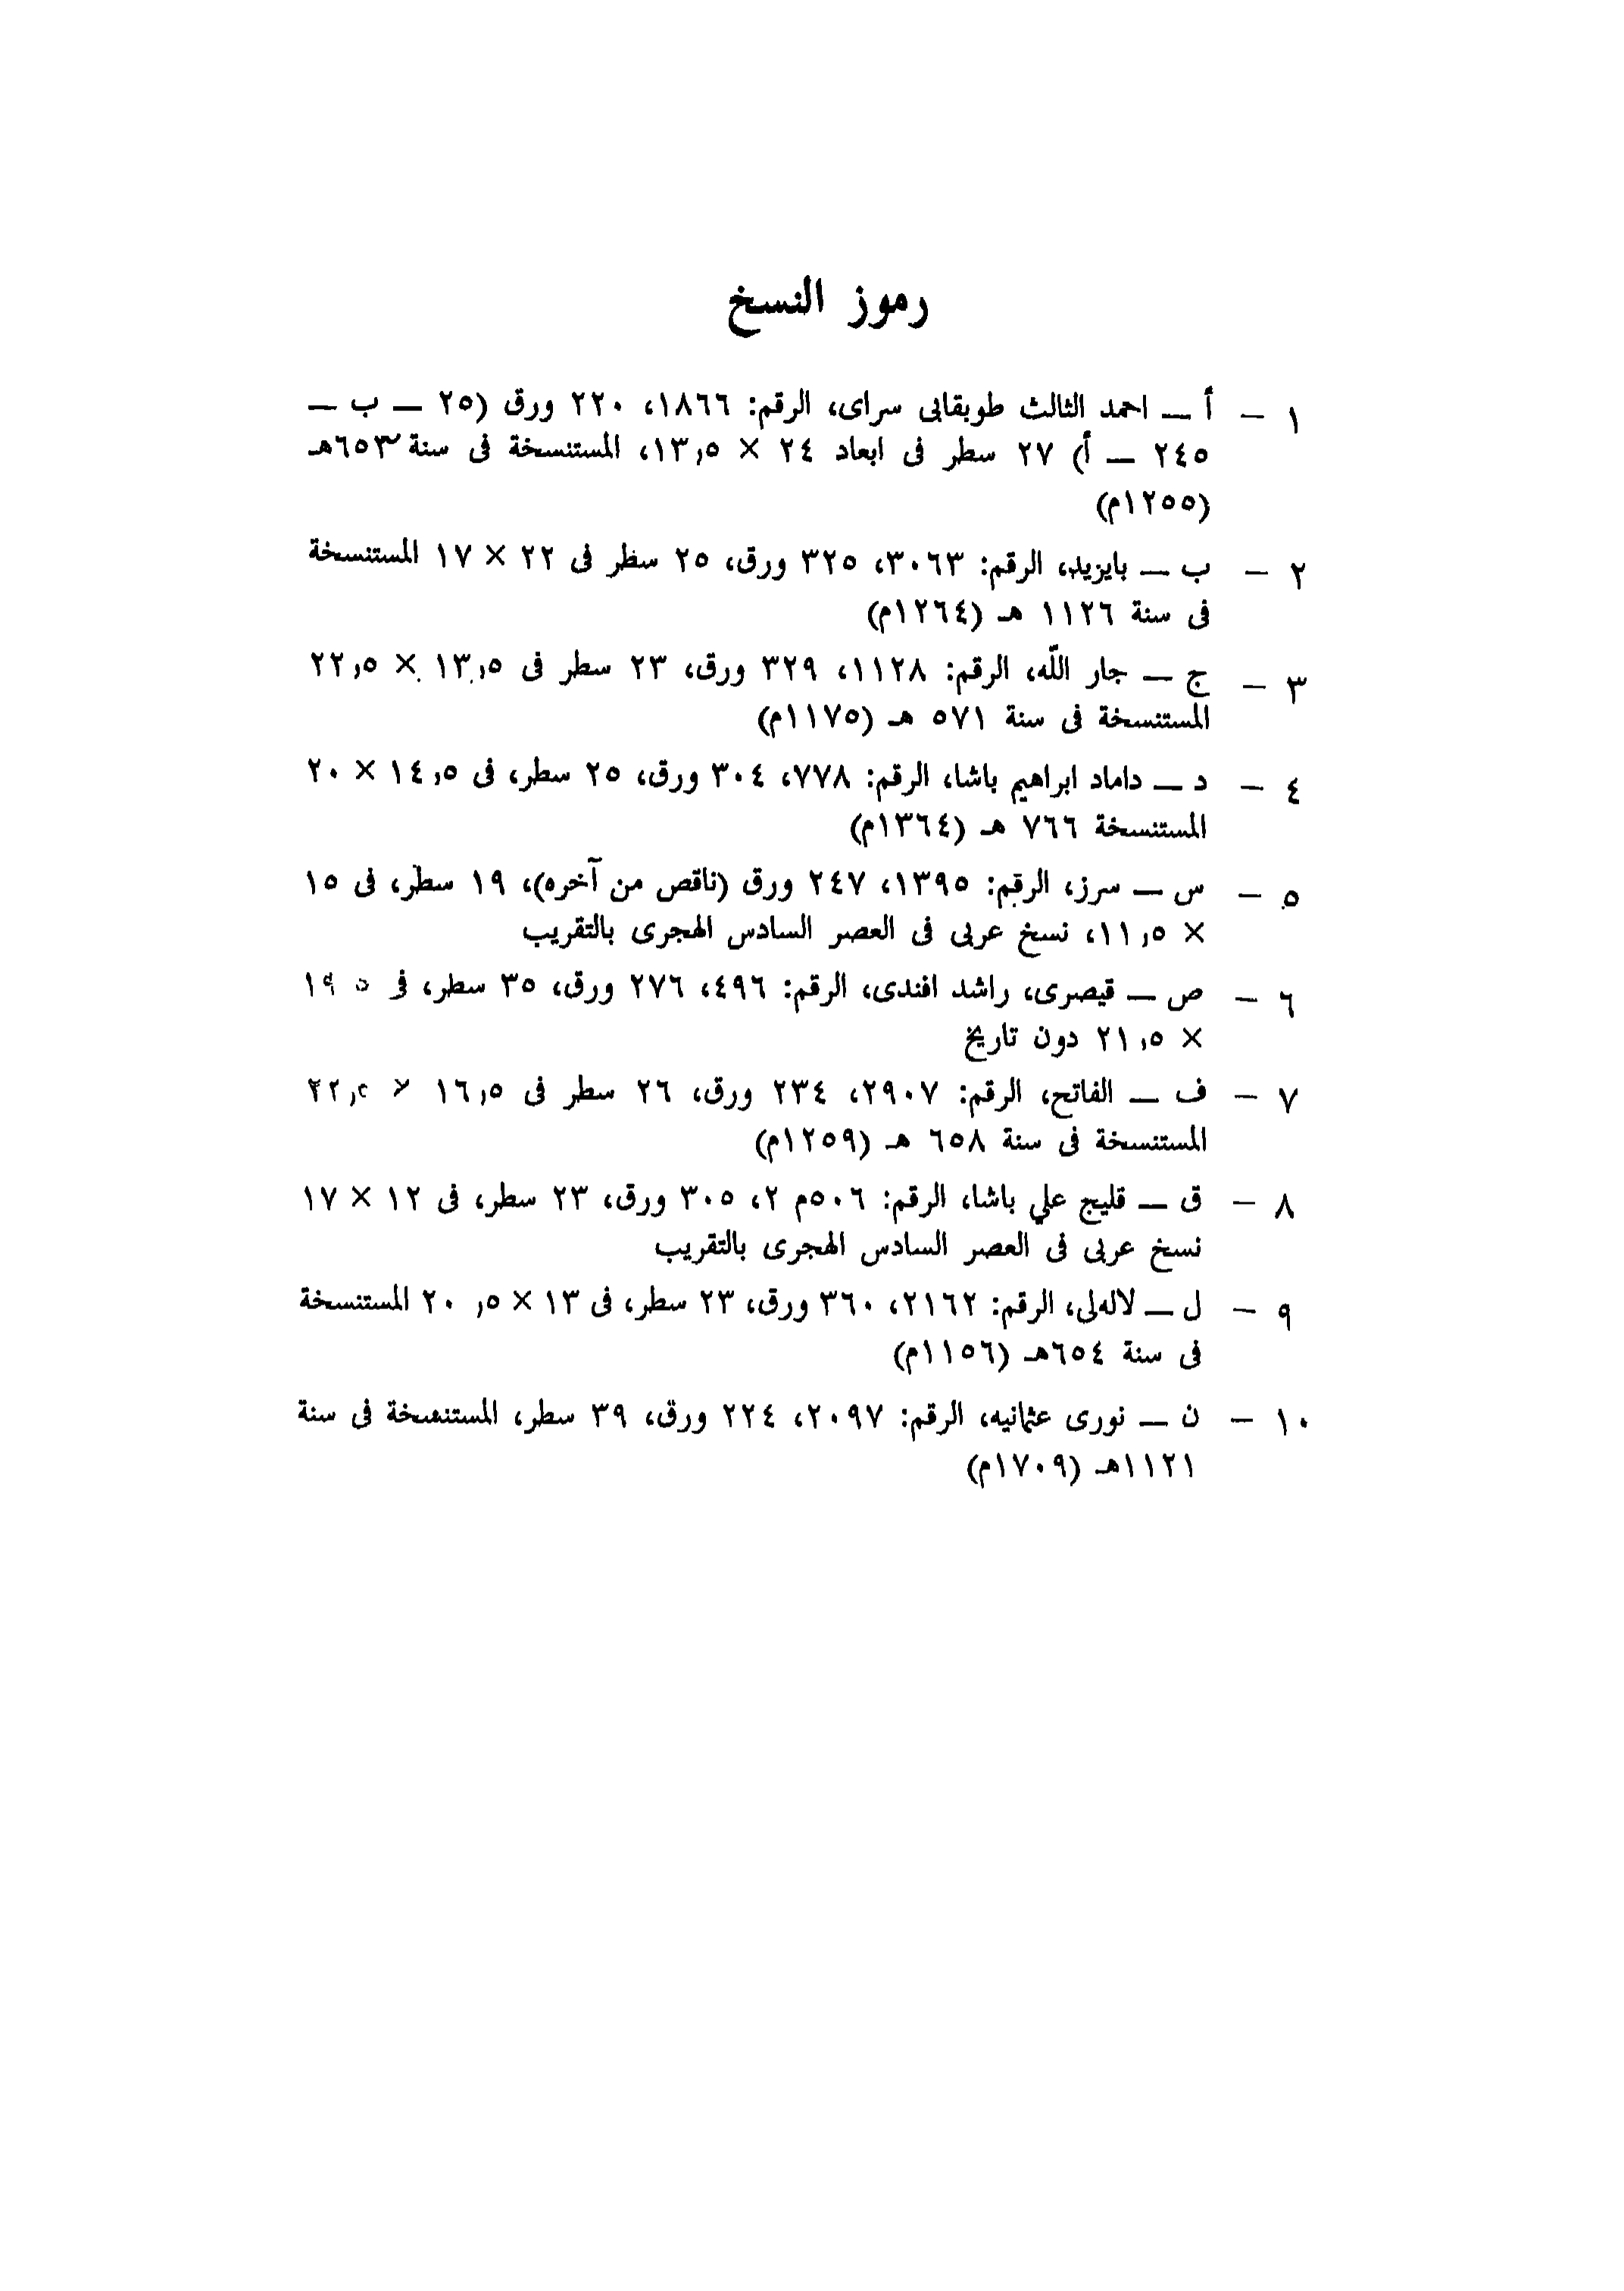 رموز النسخ
١ – أ — احمد الثالث طوبقابى سراى، الرقم: ١٨٦٦، ٢٢٠ ورق (٢٥ — ب —
٢٤٥ — أ) ٢٧ سطر فى ابعاد ٢٤ × ١٣٫٥، المستنسخة فى سنة ٦٥٣هـ
(١٢٥٥م)
٢ – ب — بايزيد، الرقم: ٣٠٦٣، ٣٢٥ ورق، ٢٥ سظر فى ٢٢ × ١٧ المستنسخة
فى سنة ١١٢٦ هـ (١٢٦٤م)
٣ – ج — جار اللّه، الرقم: ١١٢٨، ٣٢٩ ورق، ٢٣ سطر فى ١٣٫٥ × ٢٢٫٥
المستنسخة فى سنة ٥٧١ هـ (١١٧٥م)
٤ – د — داماد ابراهيم باشا، الرقم: ٧٧٨، ٣٠٤ ورق، ٢٥ سطر، فى ١٤٫٥ × ٢٠
المستنسخة ٧٦٦ هـ (١٣٦٤م)
٥ – س — سرز، الرقم: ١٣٩٥، ٢٤٧ ورق (ناقص من آخره)، ١٩ سطر، فى ١٥
× ١١٫٥، نسخ عربى فى العصر السادس الهجرى بالتقريب
٦ – ص — قيصرى، راشد افندى، الرقم: ٤٩٦، ٢٧٦ ورق، ٣٥ سطر، فى ١٩ ٥
× ٢١٫٥ دون تاريخ
٧ – ف — الفاتح، الرقم: ٢٩٠٧، ٢٣٤ ورق، ٢٦ سطر فى ١٦٫٥ × ٢٢٫٥
المستنسخة فى سنة ٦٥٨ هـ (١٢٥٩م)
٨ – ق — قليج علي باشا، الرقم: ٥٠٦م ٢، ٣٠٥ ورق، ٢٣ سطر، فى ١٢ × ١٧
نسخ عربى فى العصر السادس الهجرى بالتقريب
٩ – ل — لاله‌لى، الرقم: ٢١٦٢، ٣٦٠ ورق، ٢٣ سطر، فى ١٣ × ٢٠٫٥ المستنسخة
فى سنة ٦٥٤هـ (١١٥٦م)
١٠ – ن — نورى عثمانيه، الرقم: ٢٠٩٧، ٢٢٤ ورق، ٣٩ سطر، المستنسخة فى سنة
١١٢١هـ (١٧٠٩م)